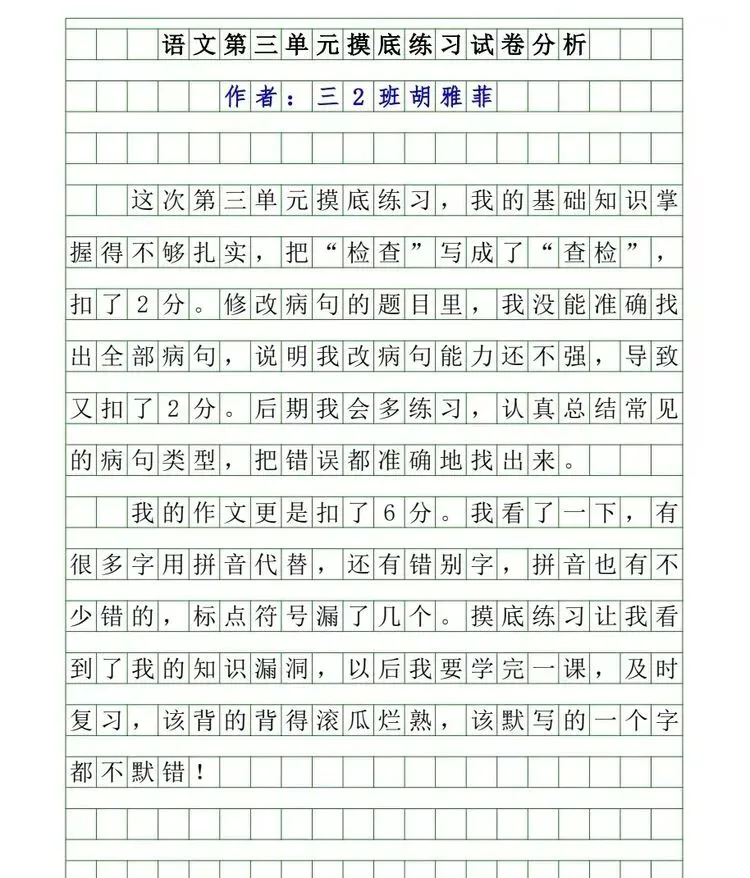 语文第三单元摸底练习试卷分析
作者：三2班胡雅菲
这次第三单元摸底练习，我的基础知识掌
握得不够扎实，把“检查”写成了“查检”，
扣了2分。修改病句的题目里，我没能准确找
出全部病句，说明我改病句能力还不强，导致
又扣了2分。后期我会多练习，认真总结常见
的病句类型，把错误都准确地找出来。
我的作文更是扣了6分。我看了一下，有
很多字用拼音代替，还有错别字，拼音也有不
少错的，标点符号漏了几个。摸底练习让我看
到了我的知识漏洞，以后我要学完一课，及时
复习，该背的背得滚瓜烂熟，该默写的一个字
都不默错！